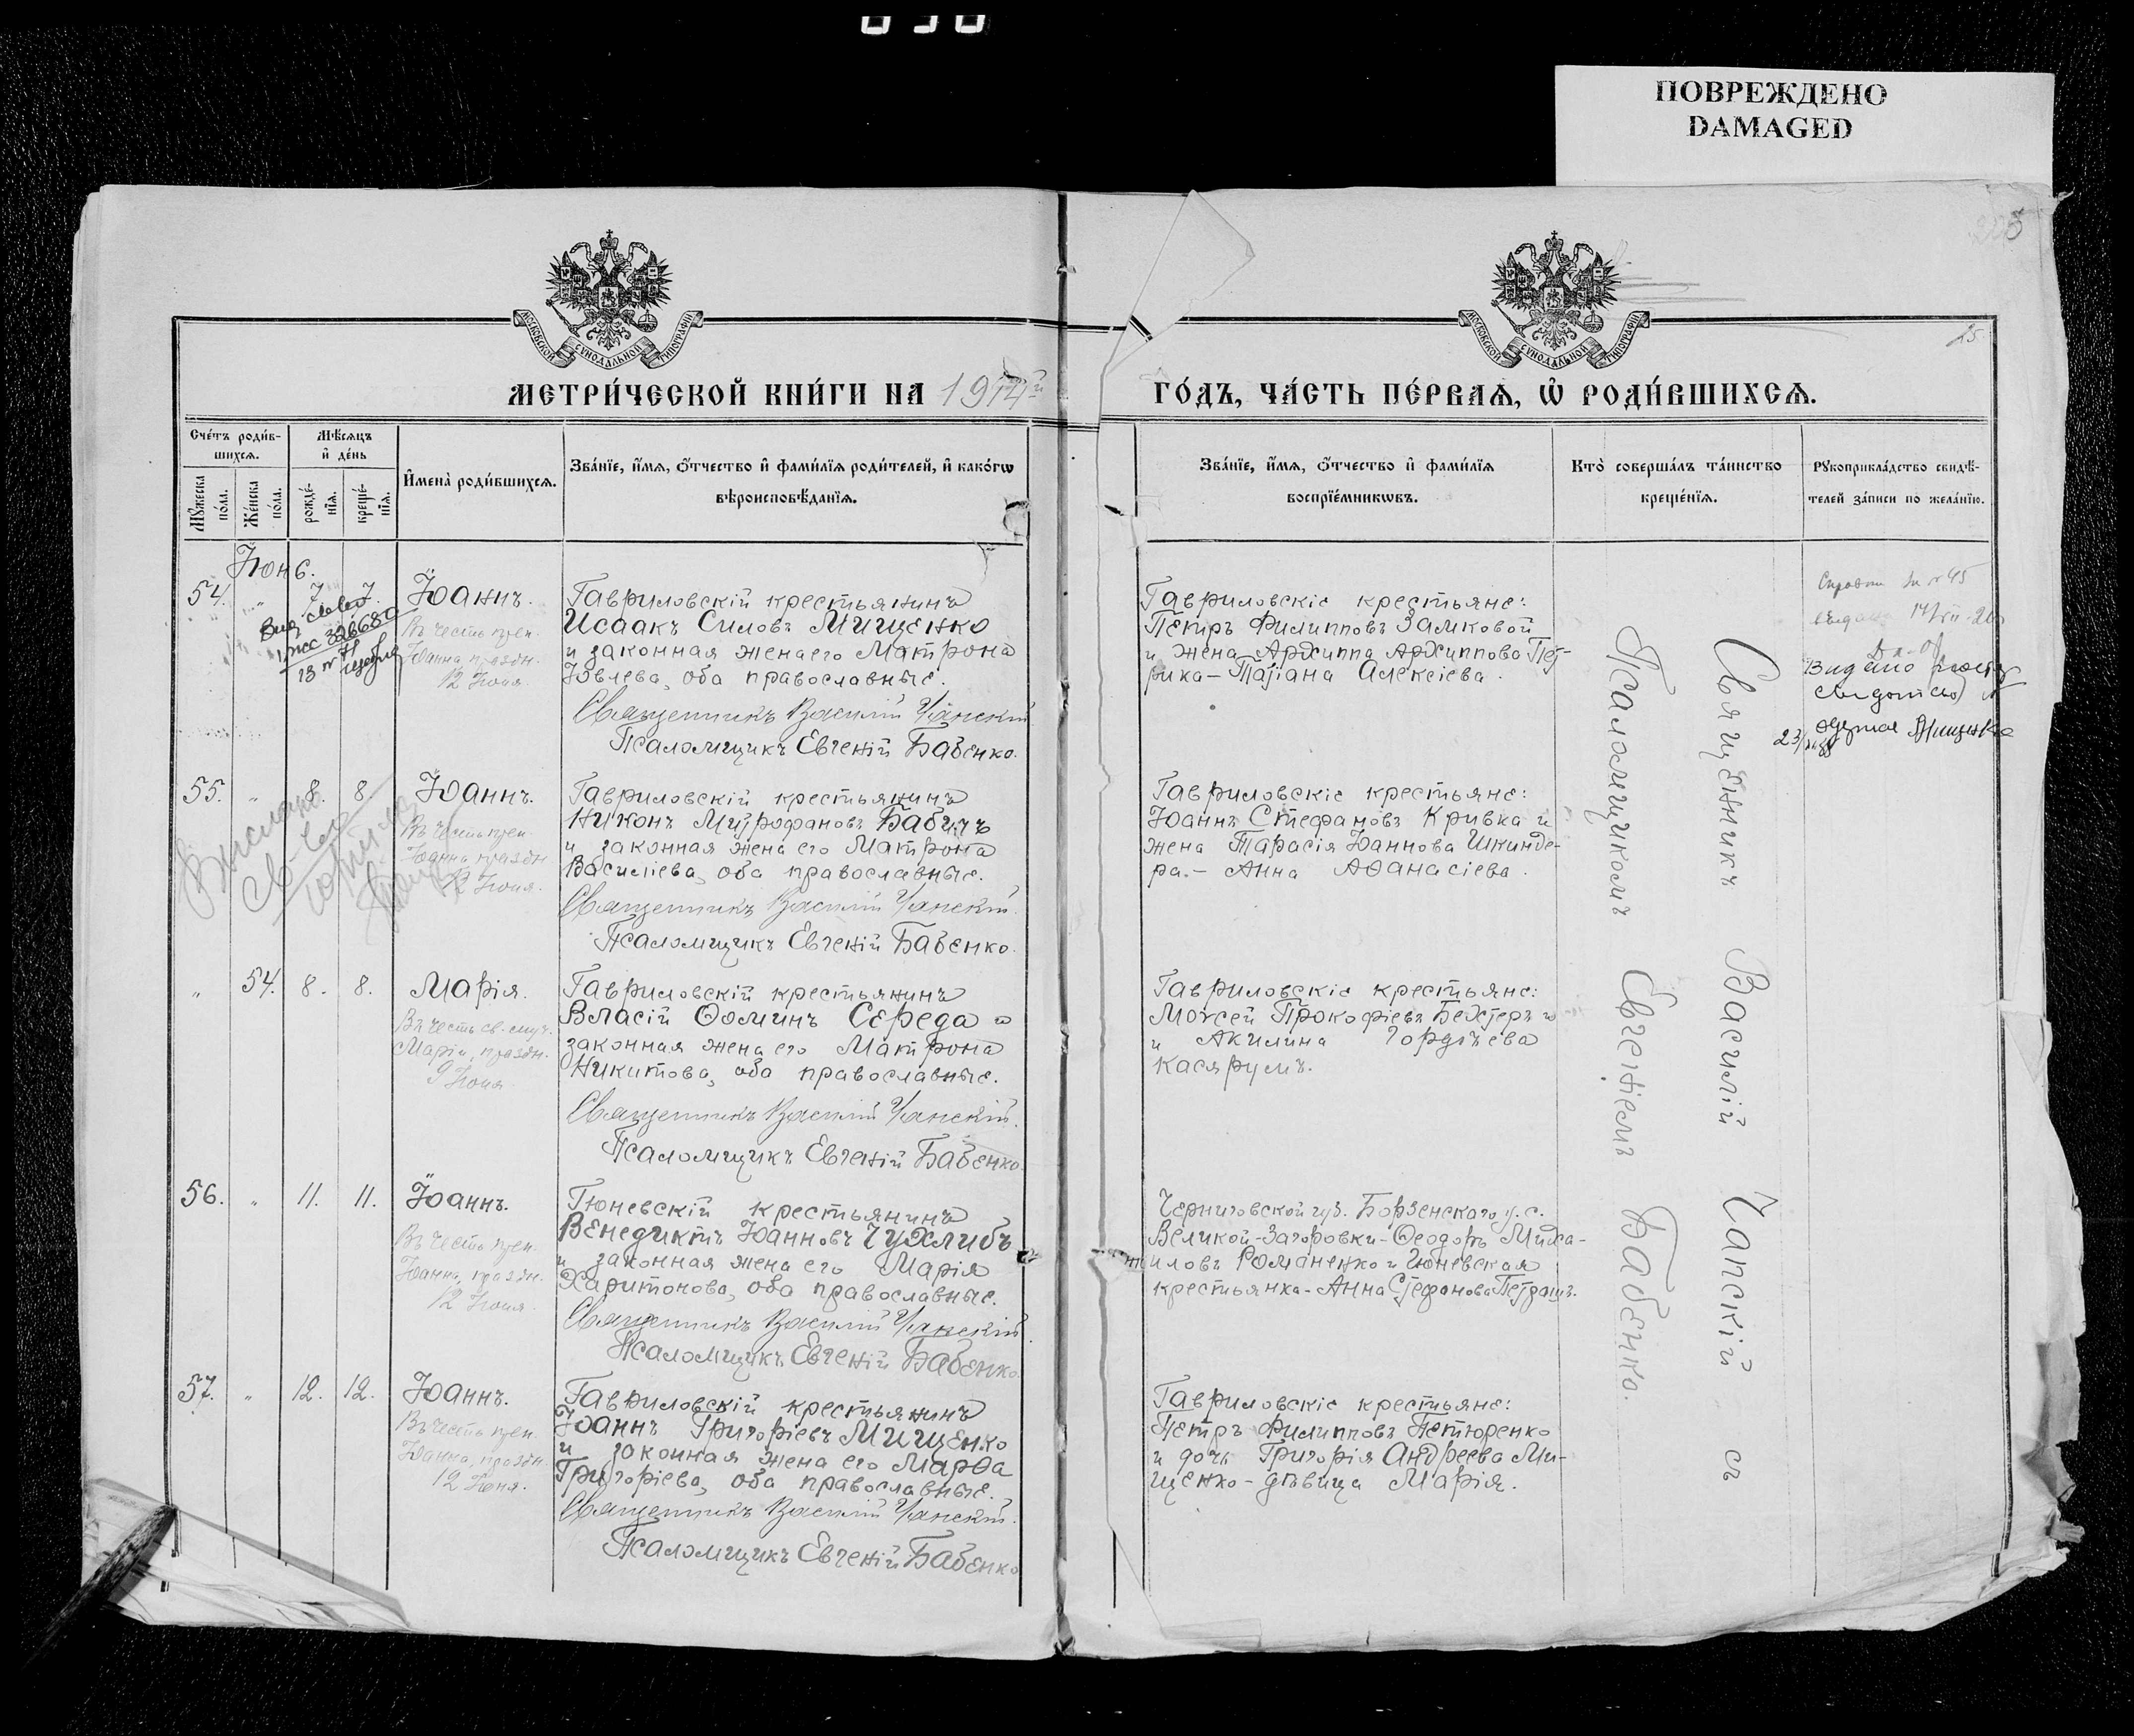 ПОВРЕЖДЕНО
DAMAGED
МОСКОВСКОЙ СѴНОДАЛЬНОЙ ТИПОГРАФІИ
МОСКОВСКОЙ СѴНОДАЛЬНОЙ ТИПОГРАФІИ
15
МЕТРИ́ЧЕСКОЙ КНИ́ГИ НА 1914й
ГО́ДЪ, ЧА́СТЬ ПЕ́РВАЯ, Ѡ҆ РОДИ́ВШИХСЯ.
Сче́тъ роди́в-
шихся.
Мѣ́сяцъ
и҆ де́нь
Мꙋ́жеска по́ла.
Же́нска по́ла.
рожде́-
нїя.
креще́-
нїя.
И҆мена̀ роди́вшихся.
Зва́нїе, и҆́мя, ѻ҆́тчество и҆ фами́лїя роди́телей, и҆ како́гѡ
вѣроисповѣ́данїя.
Зва́нїе, и҆́мя, ѻ҆́тчество и҆ фами́лїя
воспрїе́мникѡвъ.
Кто̀ соверша́лъ та́инство
креще́нїя.
Рꙋкоприкла́дство свидѣ́-
телей за́писи по жела́нїю.
Іюнь.
54. " 7. 7. Іоаннъ.
Въ честь преп.
Іоанна, праздн.
12 Іюня.
Гавриловскій крестьянинъ
Исаакъ Силовъ Мищенко
и законная жена его Матрона
Іовлева, оба православные.
Священникъ Василій Чапскій
Псаломщикъ Евгеній Бабенко.
Гавриловскіе крестьяне:
Петръ Филипповъ Замковой
и жена Архиппа Архиппова Пет-
рика – Татіана Алексіева.
55. " 8. 8. Іоаннъ.
Въ честь преп.
Іоанна, праздн.
12 Іюня.
Гавриловскій крестьянинъ
Никонъ Митрофановъ Бабичъ
и законная жена его Матрона
Василіева, оба православные.
Священникъ Василій Чапскій.
Псаломщикъ Евгеній Бабенко.
Гавриловскіе крестьяне:
Іоаннъ Стефановъ Кривка и
жена Тарасія Іоаннова Шкинде-
ра. – Анна Аѳанасіева.
" 54. 8. 8. Марія.
Въ честь св. муч.
Маріи, праздн.
9 Іюня
Гавриловскій крестьянинъ
Власій Ѳоминъ Середа и
законная жена его Матрона
Никитова, оба православные.
Священникъ Василій Чапскій.
Псаломщикъ Евгеній Бабенко.
Гавриловскіе крестьяне:
Моѵсей Прокофіевъ Бехтеръ
и Акилина Гордѣева
Касярумъ.
56. " 11. 11. Іоаннъ.
Въ честь преп.
Іоанна, праздн.
12 Іюня.
Гюневскій крестьянинъ
Венедиктъ Іоанновъ Чухлибъ
и законная жена его Марія
Харитонова, оба православные.
Священникъ Василій Чапскій.
Псаломщикъ Евгеній Бабенко.
Черниговской губ. Борзенскаго у. с.
Великой-Загоровки – Ѳеодоръ Миха-
иловъ Романенко и Гюневская
крестьянка – Анна Стефанова Петрашъ.
57. " 12. 12. Іоаннъ.
Въ честь преп.
Іоанна, праздн.
12 Іюня.
Гавриловскій крестьянинъ
Іоаннъ Григоріевъ Мищенко
и законная жена его Марѳа
Григоріева, оба православные.
Священникъ Василій Чапскій.
Псаломщикъ Евгеній Бабенко
Гавриловскіе крестьяне:
Петръ Филипповъ Петюренко
и дочь Григорія Андреева Ми-
щенко – дѣвица Марія.
Священникъ Василій Чапскій съ
Псаломщикомъ Евгеніемъ Бабенко.